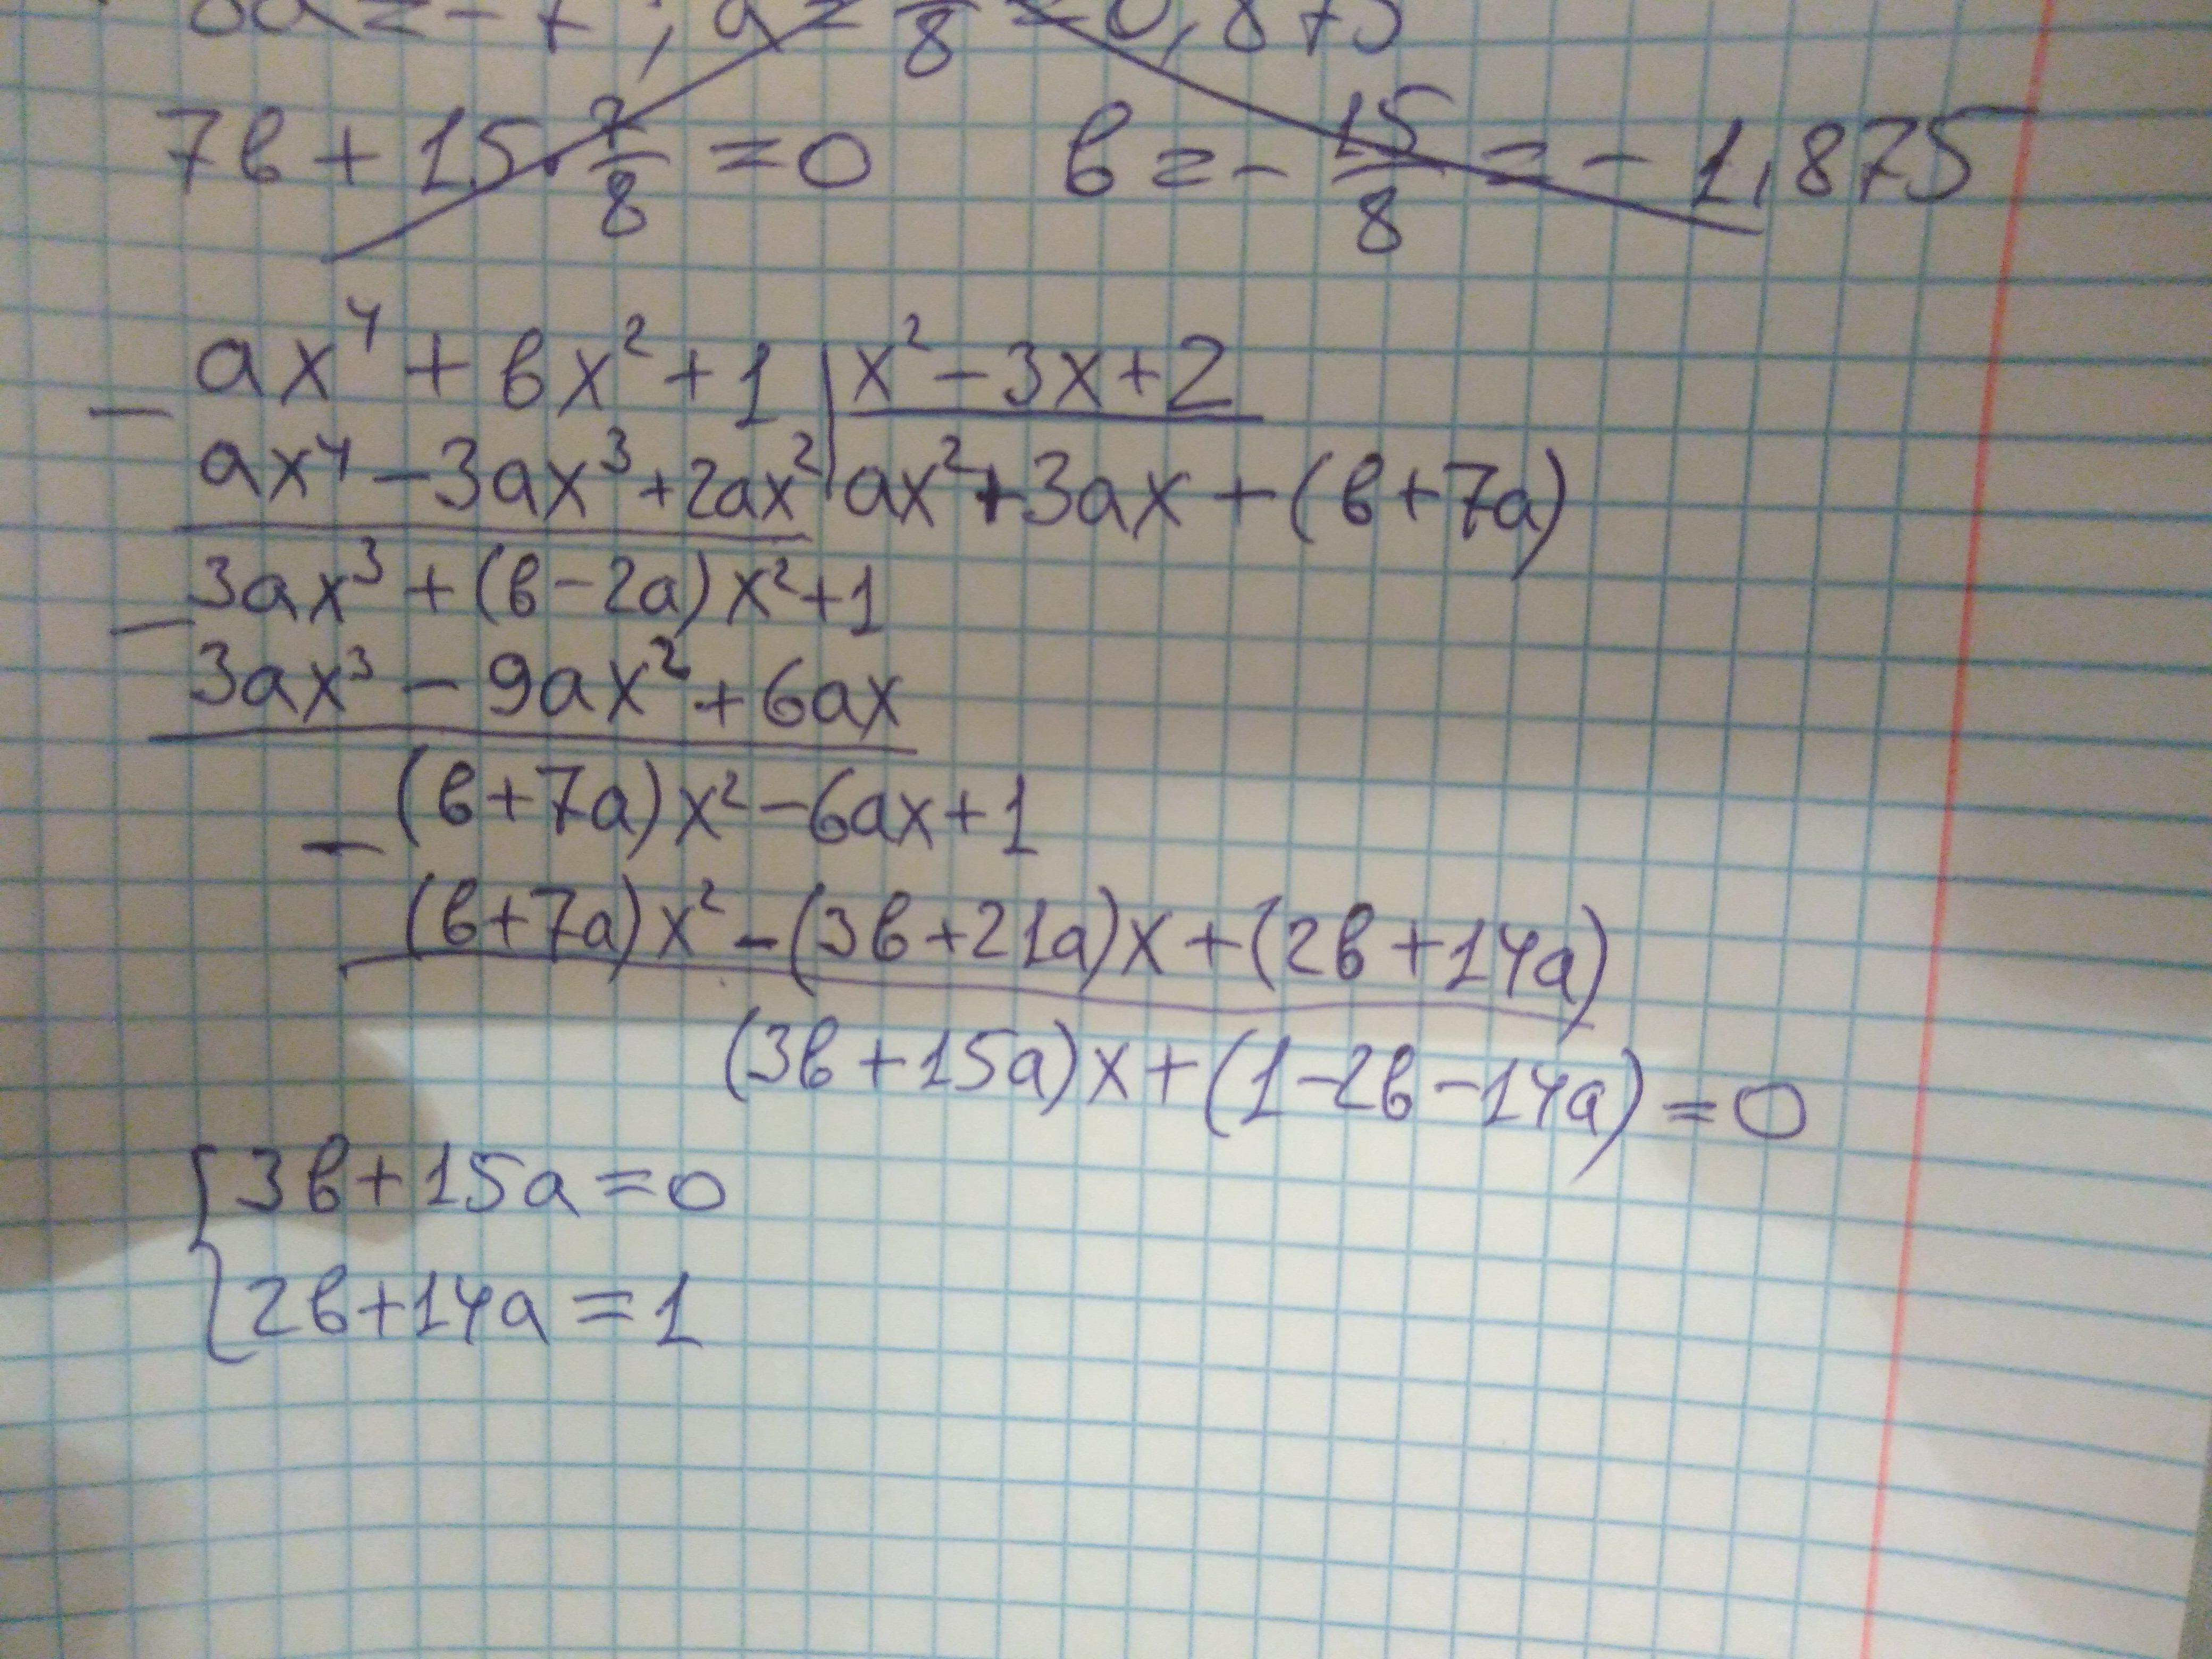 8
7в + 15 · 7/8 = 0 в = - 15/8 = - 1,875
ax⁴ + вx² + 1 | x² - 3x + 2
ax⁴ - 3ax³ + 2ax² | ax² + 3ax + (в + 7a)
3ax³ + (в - 2a) x² + 1
3ax³ - 9ax² + 6ax
(в + 7a) x² - 6ax + 1
(в + 7a) x² - (3в + 21a) x + (2в + 14a)
(3в + 15a) x + (1 - 2в - 14a) = 0
3в + 15a = 0
2в + 14a = 1